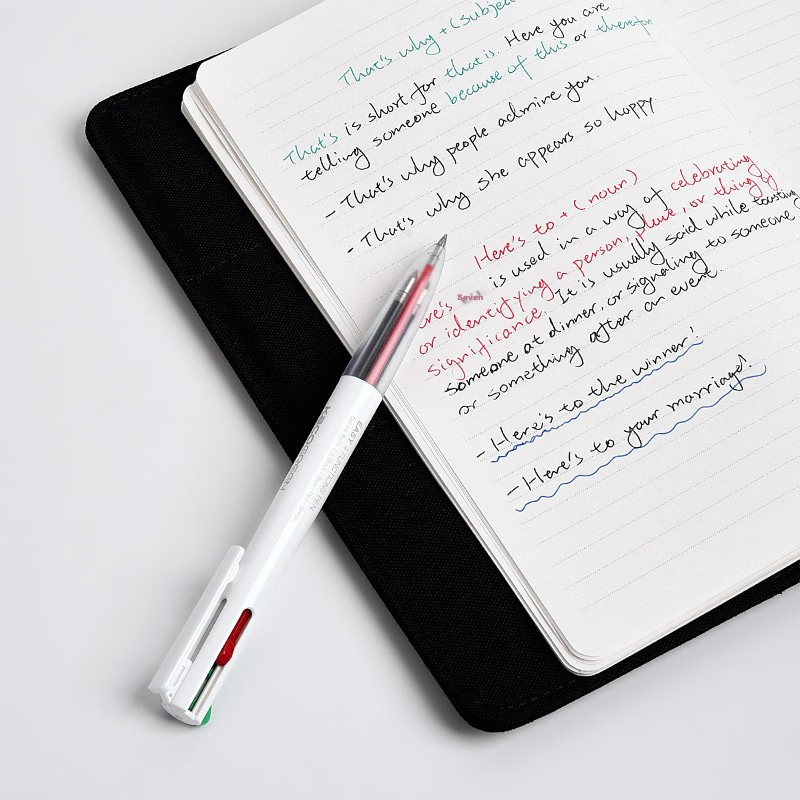 That's why + (subjec
That's is short for that is. Here you are
telling someone because of this or therefor
- That's why people admire you.
- That's why she appears so happy
Here's to + (noun)
ere's is used in a way of celebrating
or identifying a person, place, or thing of
significance. It is usually said while toasting
someone at dinner, or signaling to someone
or something after an event.
- Here's to the winner!
- Here's to your marriage!
Seven
KACOGREEN
EASY 4 FUNCTIONS PEN